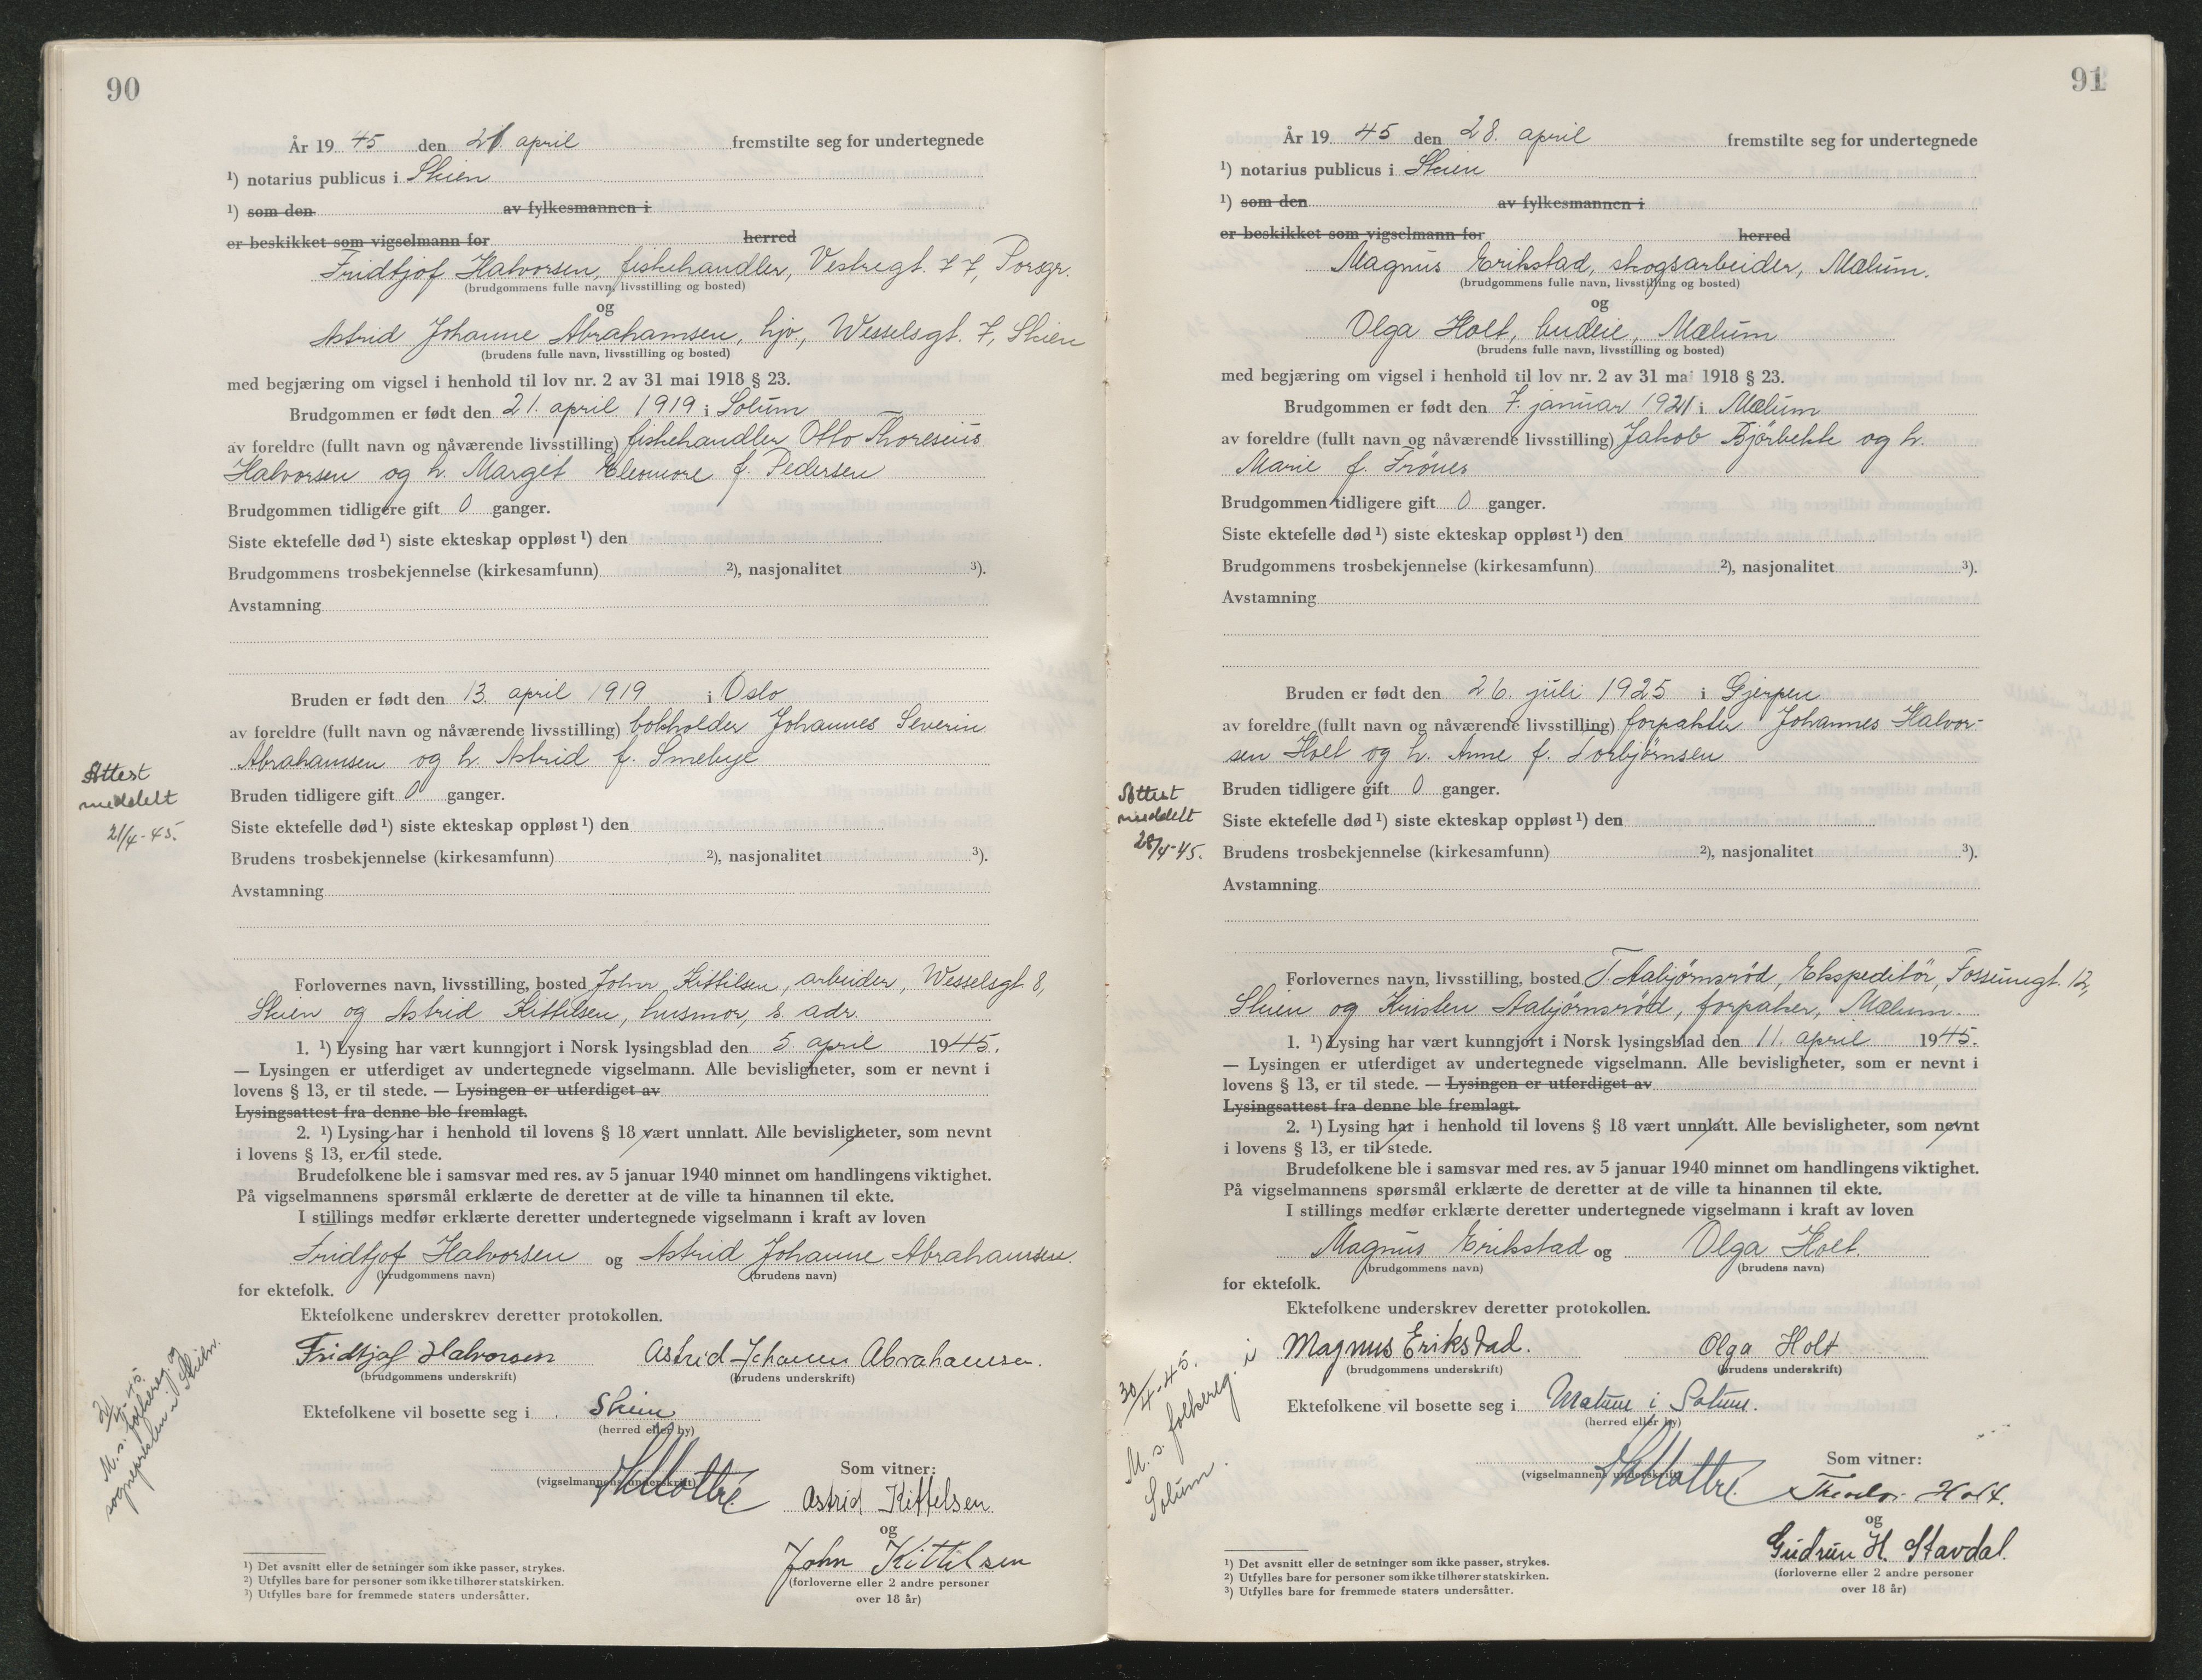 90
År 19 45 den 21 april fremstilte seg for undertegnede
¹) notarius publicus i Skien
¹) som den av fylkesmannen i
er beskikket som vigselmann for herred
Fridtjof Halvorsen, fiskehandler, Vestregt. 77, Porsgr.
(brudgommens fulle navn, livsstilling og bosted)
og
Astrid Johanne Abrahamsen, hjv., Wesselsgt. 7, Skien
(brudens fulle navn, livsstilling og bosted)
med begjæring om vigsel i henhold til lov nr. 2 av 31 mai 1918 § 23.
Brudgommen er født den 21. april 1919 i Solum
av foreldre (fullt navn og nåværende livsstilling) fiskehandler Otto Thoresius
Halvorsen og h. Marget Eleonore f. Pedersen
Brudgommen tidligere gift 0 ganger.
Siste ektefelle død ¹) siste ekteskap oppløst ¹) den
Brudgommens trosbekjennelse (kirkesamfunn) ²), nasjonalitet ³).
Avstamning
Bruden er født den 13. april 1919 i Oslo
av foreldre (fullt navn og nåværende livsstilling) bokholder Johannes Severin
Abrahamsen og h. Astrid f. Smebye
Bruden tidligere gift 0 ganger.
Siste ektefelle død ¹) siste ekteskap oppløst ¹) den
Brudens trosbekjennelse (kirkesamfunn) ²), nasjonalitet ³).
Avstamning
Attest
meddelt
21/4-45.
Forlovernes navn, livsstilling, bosted John Kittilsen, arbeider, Wesselsgt 8,
Skien og Astrid Kittilsen, husmor, s. adr.
1. ¹) Lysing har vært kunngjort i Norsk lysingsblad den 5. april 1945.
— Lysingen er utferdiget av undertegnede vigselmann. Alle bevisligheter, som er nevnt i
lovens § 13, er til stede. — Lysingen er utferdiget av
Lysingsattest fra denne ble fremlagt.
2. ¹) Lysing har i henhold til lovens § 18 vært unnlatt. Alle bevisligheter, som nevnt
i lovens § 13, er til stede.
Brudefolkene ble i samsvar med res. av 5 januar 1940 minnet om handlingens viktighet.
På vigselmannens spørsmål erklærte de deretter at de ville ta hinannen til ekte.
I stillings medfør erklærte deretter undertegnede vigselmann i kraft av loven
Fridtjof Halvorsen og Astrid Johanne Abrahamsen.
(brudgommens navn) (brudens navn)
for ektefolk.
Ektefolkene underskrev deretter protokollen.
Fridtjof Halvorsen Astrid Johanne Abrahamsen.
(brudgommens underskrift) (brudens underskrift)
Ektefolkene vil bosette seg i Skien
(herred eller by)
M. s. folkereg. og
sognepresten i Skien.
(vigselmannens underskrift)
Som vitner:
Astrid Kittelsen
og
John Kittilsen
(forloverne eller 2 andre personer
over 18 år)
¹) Det avsnitt eller de setninger som ikke passer, strykes.
²) Utfylles bare for personer som ikke tilhører statskirken.
³) Utfylles bare for fremmede staters undersåtter.
91
År 19 45 den 28. april fremstilte seg for undertegnede
¹) notarius publicus i Skien
¹) som den av fylkesmannen i
er beskikket som vigselmann for herred
Magnus Erikstad, skogsarbeider, Mælum.
(brudgommens fulle navn, livsstilling og bosted)
og
Olga Holt, budeie, Mælum
(brudens fulle navn, livsstilling og bosted)
med begjæring om vigsel i henhold til lov nr. 2 av 31 mai 1918 § 23.
Brudgommen er født den 7. januar 1921 i Mælum
av foreldre (fullt navn og nåværende livsstilling) Jakob Bjørbekk og h.
Marie f. Frønes
Brudgommen tidligere gift 0 ganger.
Siste ektefelle død ¹) siste ekteskap oppløst ¹) den
Brudgommens trosbekjennelse (kirkesamfunn) ²), nasjonalitet ³).
Avstamning
Bruden er født den 26. juli 1925 i Gjerpen
av foreldre (fullt navn og nåværende livsstilling) forpakter Johannes Halvor-
sen Holt og h. Anne f. Torbjørnsen
Bruden tidligere gift 0 ganger.
Siste ektefelle død ¹) siste ekteskap oppløst ¹) den
Brudens trosbekjennelse (kirkesamfunn) ²), nasjonalitet ³).
Avstamning
Attest
meddelt
28/4-45.
Forlovernes navn, livsstilling, bosted T. Aabjørnsrød, Ekspeditør, Fossumgt. 12,
Skien og Kristen Aabjørnsrød, forpakter, Mælum.
1. ¹) Lysing har vært kunngjort i Norsk lysingsblad den 11. april 1945.
— Lysingen er utferdiget av undertegnede vigselmann. Alle bevisligheter, som er nevnt i
lovens § 13, er til stede. — Lysingen er utferdiget av
Lysingsattest fra denne ble fremlagt.
2. ¹) Lysing har i henhold til lovens § 18 vært unnlatt. Alle bevisligheter, som nevnt
i lovens § 13, er til stede.
Brudefolkene ble i samsvar med res. av 5 januar 1940 minnet om handlingens viktighet.
På vigselmannens spørsmål erklærte de deretter at de ville ta hinannen til ekte.
I stillings medfør erklærte deretter undertegnede vigselmann i kraft av loven
Magnus Erikstad og Olga Holt.
(brudgommens navn) (brudens navn)
for ektefolk.
Ektefolkene underskrev deretter protokollen.
Magnus Erikstad. Olga Holt
(brudgommens underskrift) (brudens underskrift)
Ektefolkene vil bosette seg i Mælum i Solum.
(herred eller by)
30/4-45.
M. s. folkereg. i
Solum.
(vigselmannens underskrift)
Som vitner:
Theodor Holt.
og
Gudrun H. Stavdal.
(forloverne eller 2 andre personer
over 18 år)
¹) Det avsnitt eller de setninger som ikke passer, strykes.
²) Utfylles bare for personer som ikke tilhører statskirken.
³) Utfylles bare for fremmede staters undersåtter.